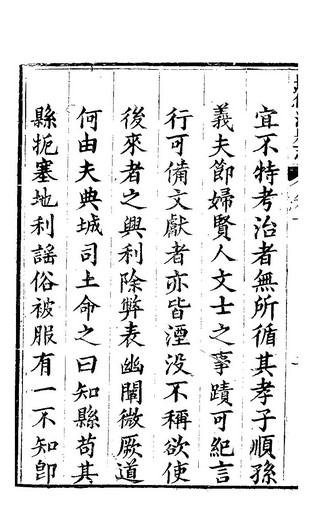 宜不特考治者無所循其孝子順孫
義夫節婦賢人文士之事蹟可紀言
行可備文獻者亦皆湮没不稱欲使
後來者之興利除弊表幽闡微厥道
何由夫典城司土命之曰知縣苟其
縣扼塞地利謡俗被服有一不知卽